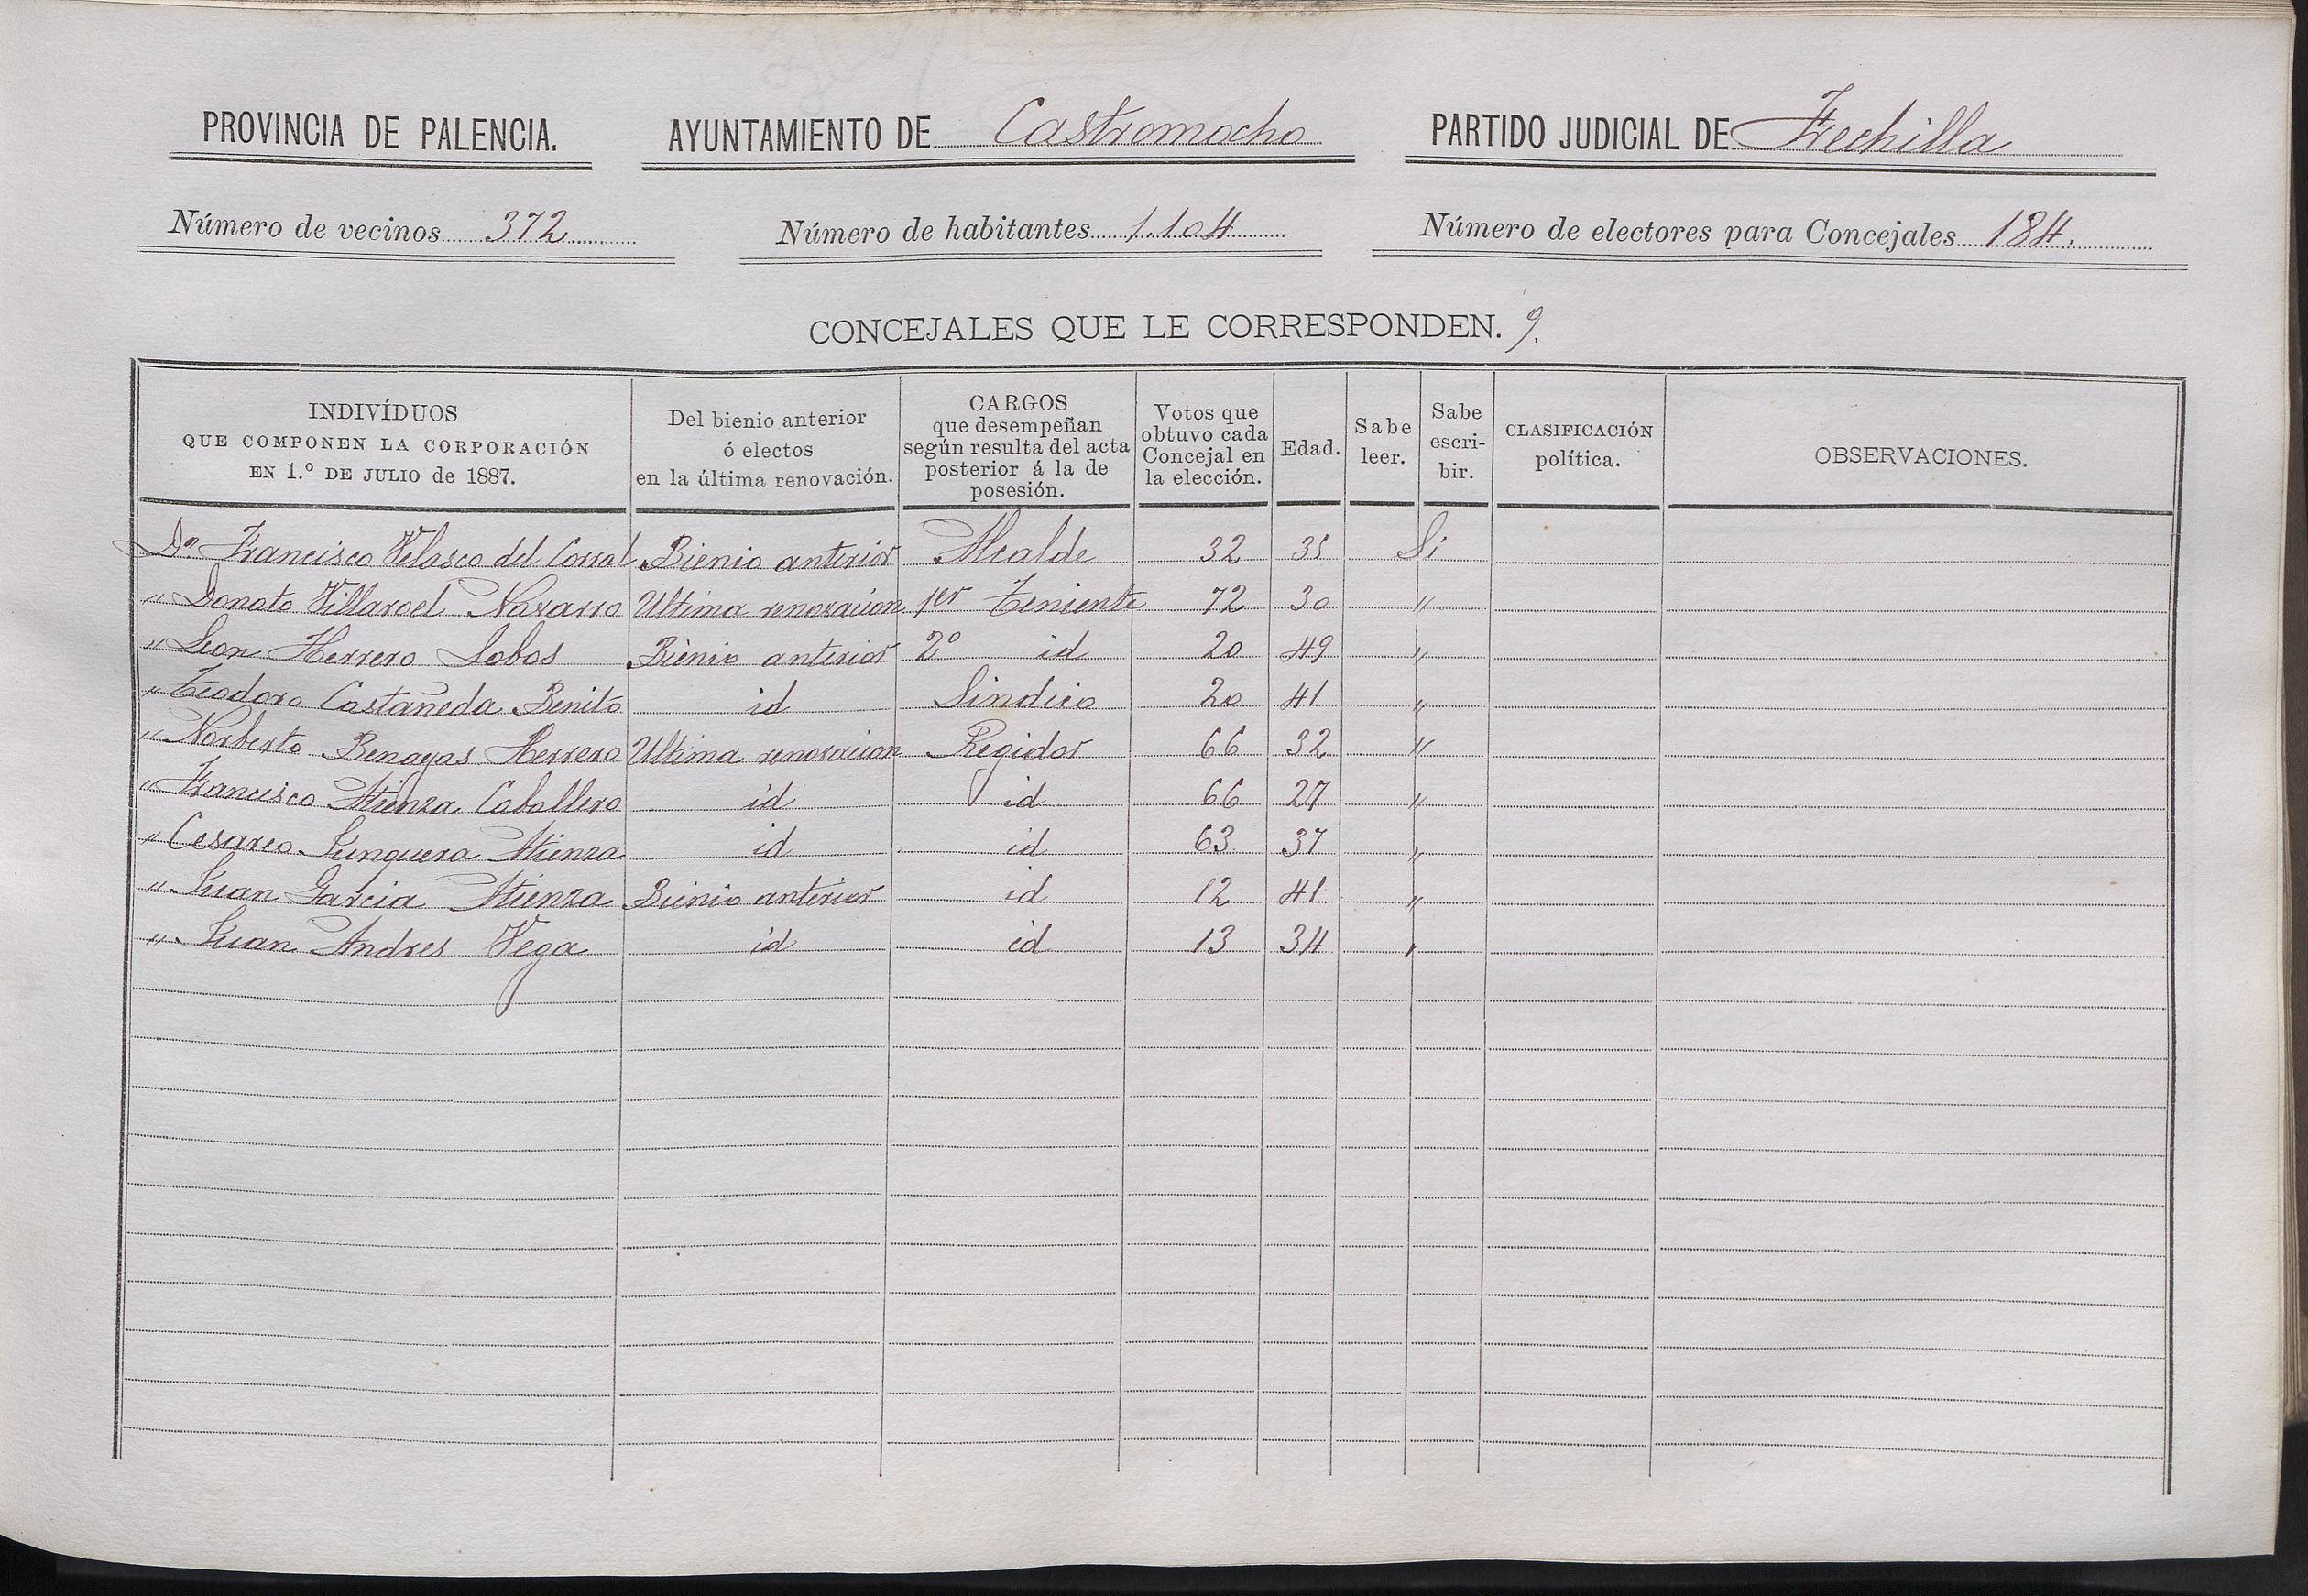 PROVINCIA DE PALENCIA. AYUNTAMIENTO DE Castromocho PARTIDO JUDICIAL DE Frechilla
Número de vecinos 372 Número de habitantes 1.104 Número de electores para Concejales 184.
CONCEJALES QUE LE CORRESPONDEN. 9.
INDIVÍDUOS
QUE COMPONEN LA CORPORACIÓN
EN 1.º DE JULIO de 1887.
Del bienio anterior
ó electos
en la última renovación.
CARGOS
que desempeñan
según resulta del acta
posterior á la de
posesión.
Votos que
obtuvo cada
Concejal en
la elección.
Edad.
Sabe
leer.
Sabe
escri-
bir.
CLASIFICACIÓN
política.
OBSERVACIONES.
Dn. Francisco Velasco del Corral Bienio anterior Alcalde 32 35 Si
" Donato Villaroel Navarro Ultima renovacion 1er Teniente 72 30 "
" Leon Herrero Lobos Bienio anterior 2º id 20 49 "
" Teodoro Castañeda Benito id Sindico 20 41 "
" Norberto Benayas Herrero Ultima renovacion Regidor 66 32 "
" Francisco Atienza Caballero id id 66 27 "
" Cesareo Junquera Atienza id id 63 37 "
" Juan Garcia Atienza Bienio anterior id 12 41 "
" Juan Andres Vega id id 13 34 "